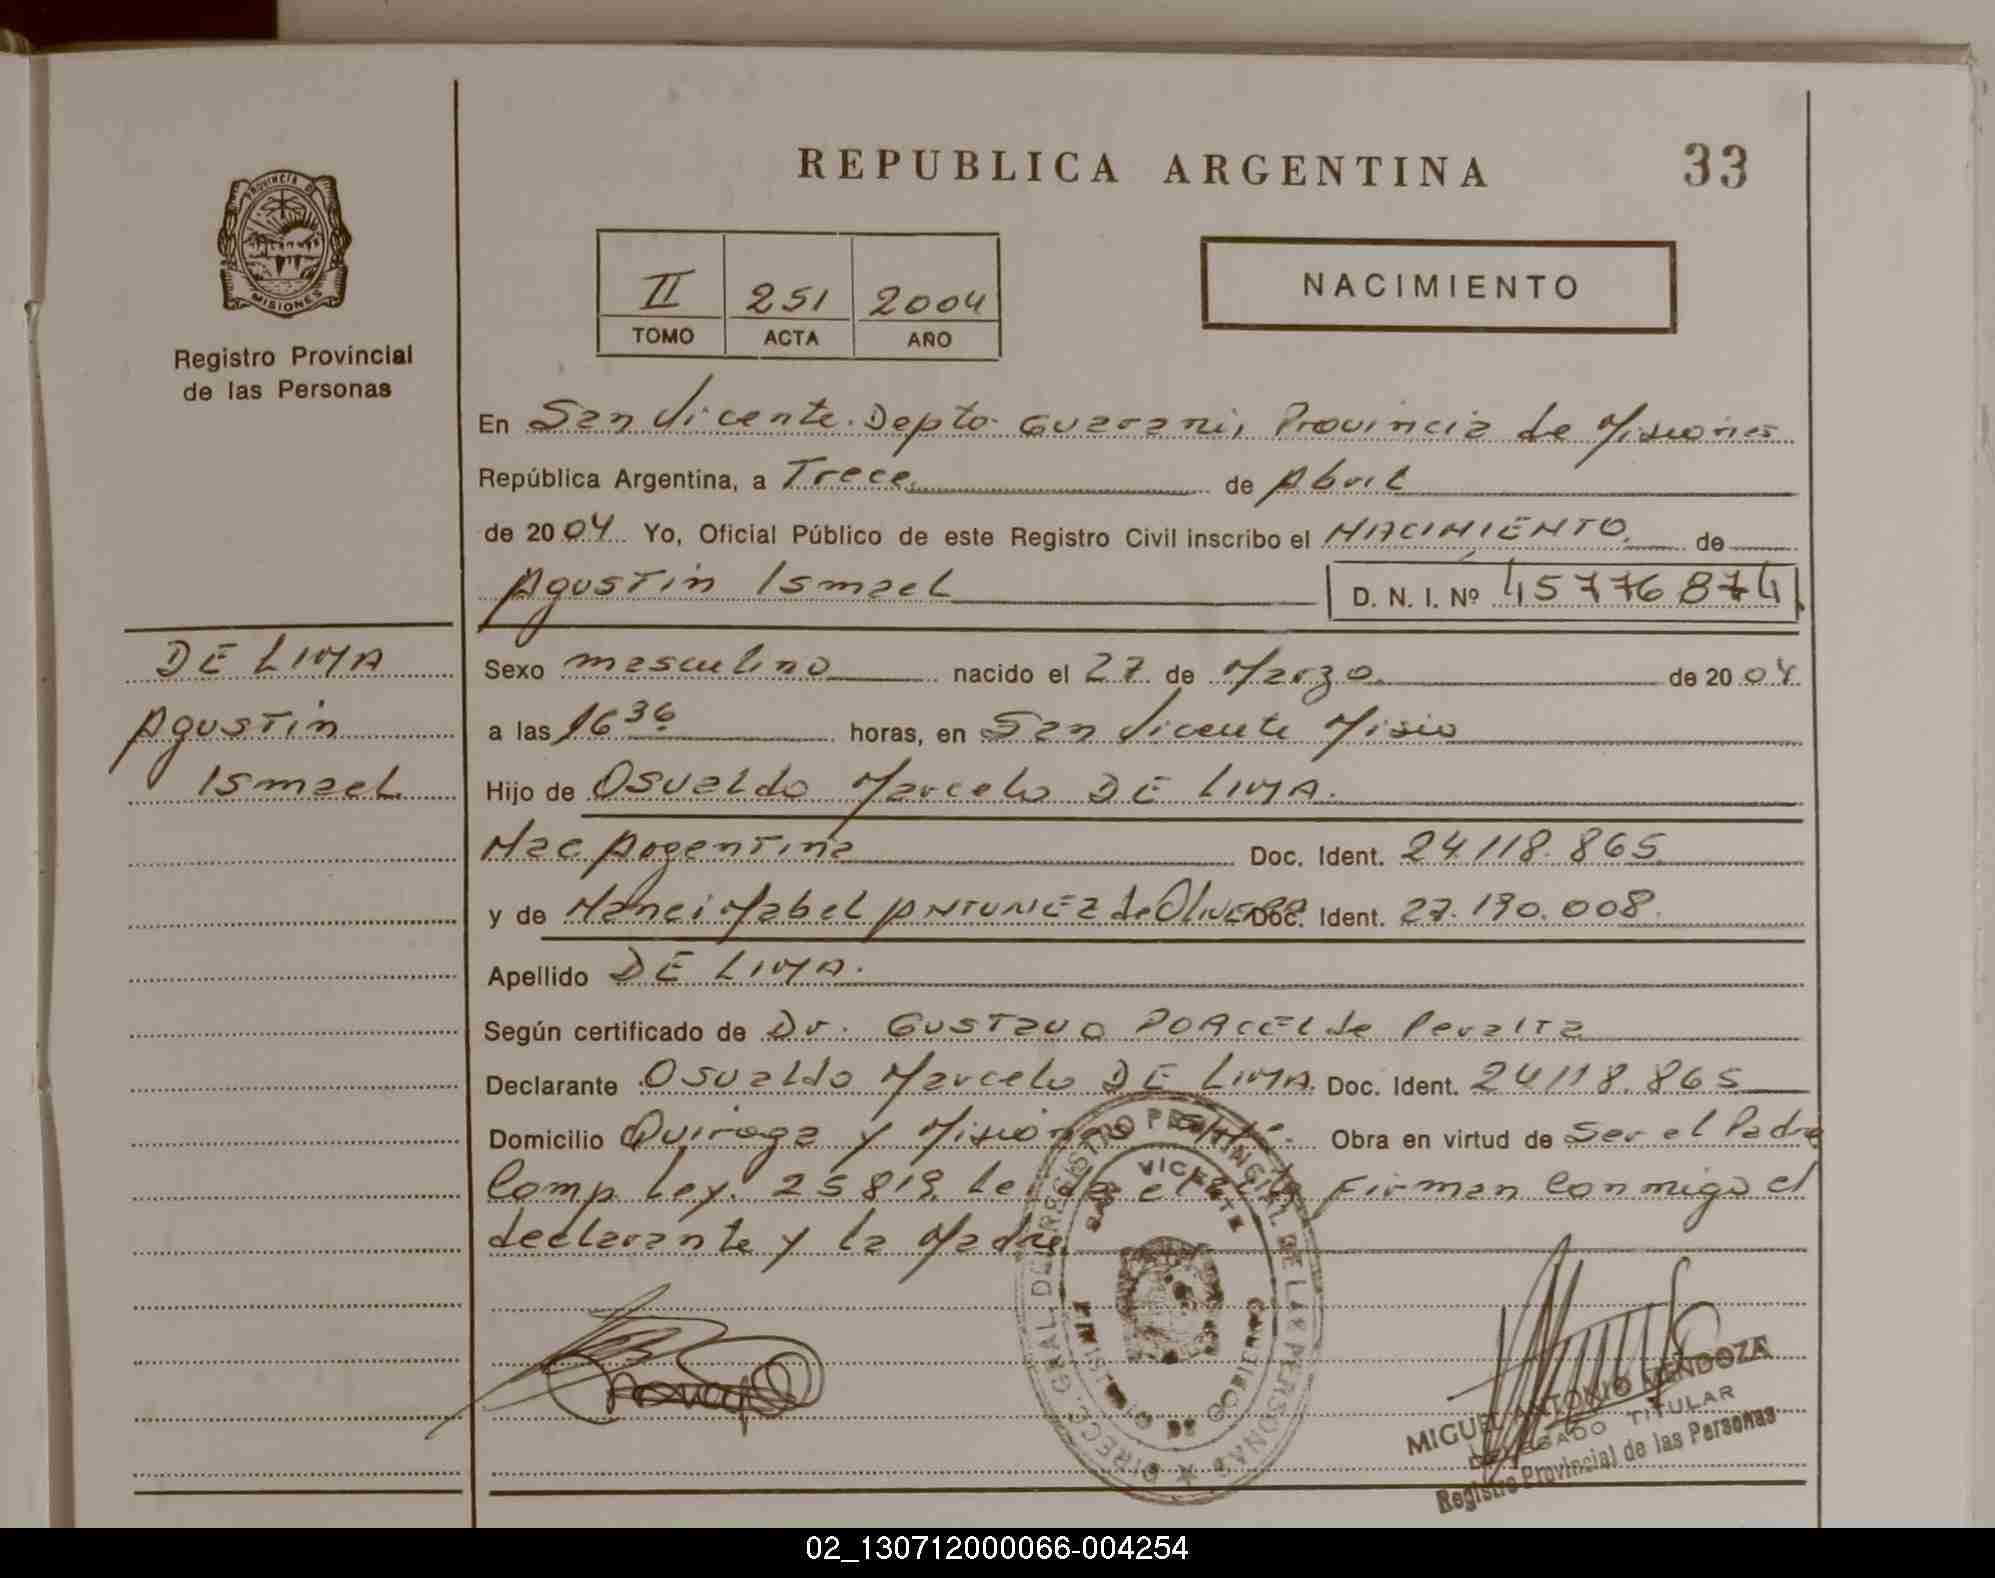 REPUBLICA ARGENTINA
33
PROVINCIA D
MISIONES
Registro Provincial
de las Personas
II 251 2004
TOMO ACTA AÑO
NACIMIENTO
En San Vicente. Depto. Guarani, Provincia de Misiones
República Argentina, a Trece de Abril
de 2004 Yo, Oficial Público de este Registro Civil inscribo el NACIMIENTO de
Agustin Ismael D. N. I. Nº 45776874
DE LIMA
Agustin
Ismael
Sexo masculino nacido el 27 de Marzo de 2004
a las 16 36 horas, en San Vicente Misio
Hijo de Osvaldo Marcelo DE LIMA.
Nac Argentina Doc. Ident. 24.118.865
y de Nanci Mabel ANTUNEZ de OLIVERA Doc. Ident. 27.190.008
Apellido DE LIMA.
Según certificado de Dr. Gustavo PORCEL de Peralta
Declarante Osvaldo Marcelo DE LIMA. Doc. Ident. 24118.865
Domicilio Quiroga y Misiones Obra en virtud de Ser el Padre
Comp. Ley. 25819. Firman Conmigo el
declarante y la Madre
DIREC. GRAL. DE REGISTRO PROVINCIAL DE LAS PERSONAS
SAN VICENTE
MINISTERIO DE GOBIERNO
MIGUEL ANTONIO MENDOZA
DELEGADO TITULAR
Registro Provincial de las Personas
02_130712000066-004254